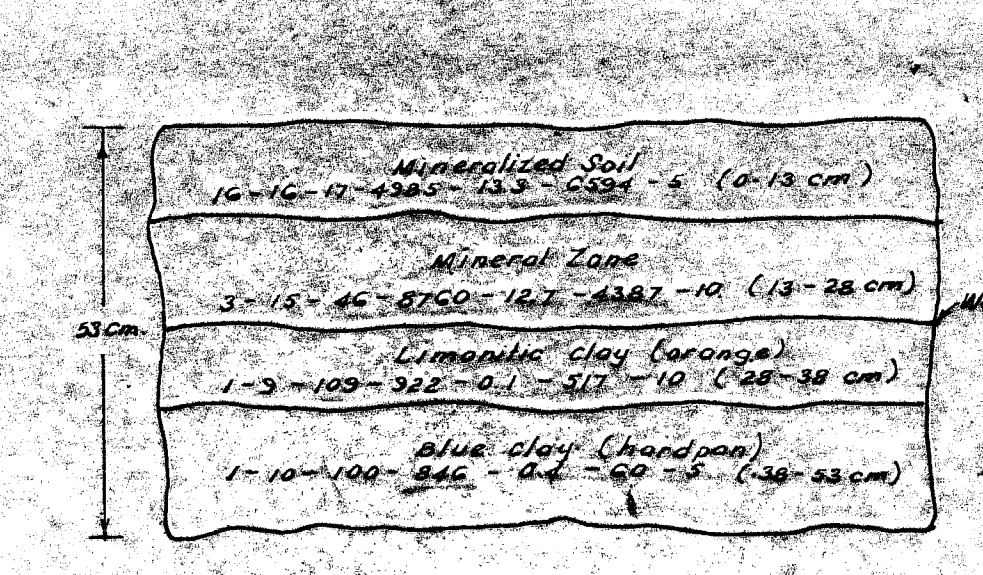 Mineralized Soil
16 - 16 - 17 - 4985 - 13.3 - 6594 - 5 (0-13 cm)
Mineral Zone
3 - 15 - 46 - 8760 - 12.7 - 4387 - 10 (13 - 28 cm)
53 cm.
Limonitic clay (orange)
1 - 9 - 109 - 922 - 0.1 - 517 - 10 (28-38 cm)
Blue clay (hardpan)
1 - 10 - 100 - 846 - - 60 - 5 (38-53 cm)